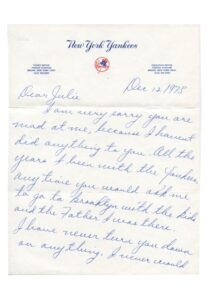 New York Yankees
Dec 12 1978
Dear Julie
I am very sorry you are
mad at me, because I havent
did anything to you. All the
years I been with the Yankees
any time you would ask me
to go to Brooklyn with the kids
and the Father I was there.
I have never turn you down
on anything. I never would